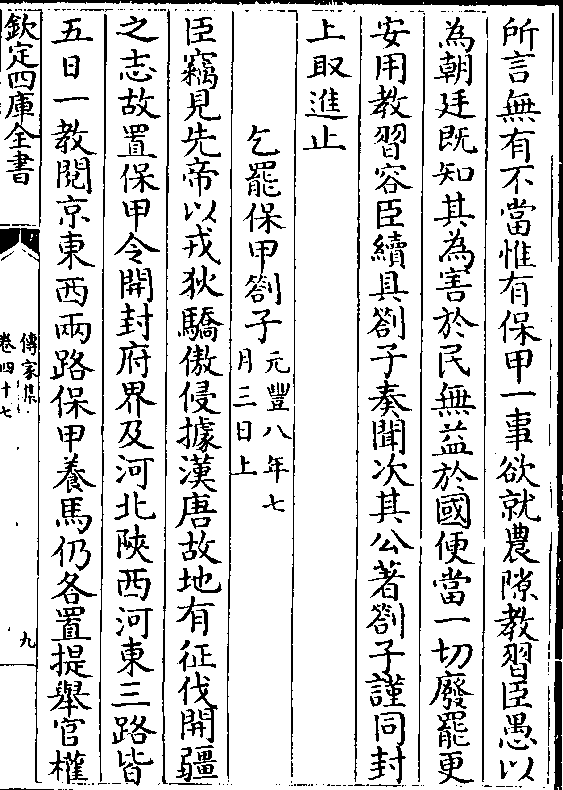 所言無有不當惟有保甲一事欲就農隙教習臣愚以
為朝廷既知其為害於民無益於國便當一切廢罷更
安用教習容臣續具劄子奏聞次其公著劄子謹同封
上取進止
乞罷保甲劄子元豐八年七
月三日上
臣竊見先帝以戎狄驕傲侵據漢唐故地有征伐開疆
之志故置保甲令開封府界及河北陝西河東三路皆
五日一教閱京東西兩路保甲養馬仍各置提舉官權
欽定四庫全書
傳家集
卷四十七
九